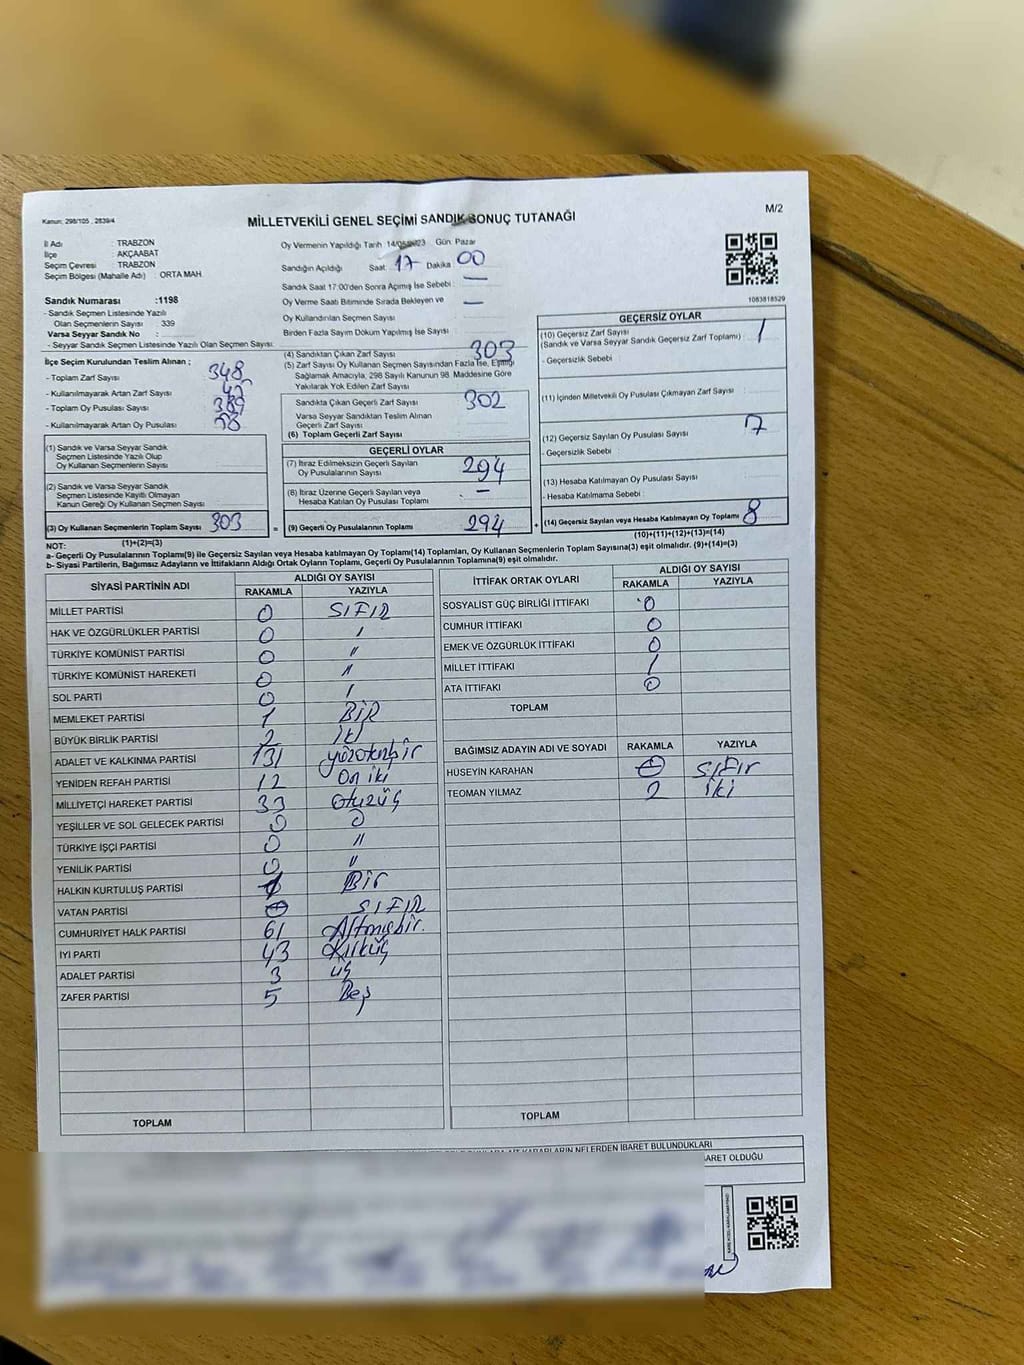 Kanun: 298/105 , 2839/4
MİLLETVEKİLİ GENEL SEÇİMİ SANDIK SONUÇ TUTANAĞI
M/2
İl Adı : TRABZON
İlçe : AKÇAABAT
Seçim Çevresi : TRABZON
Seçim Bölgesi (Mahalle Adı) : ORTA MAH.
Sandık Numarası :1198
- Sandık Seçmen Listesinde Yazılı
Olan Seçmenlerin Sayısı : 339
Varsa Seyyar Sandık No :
- Seyyar Sandık Seçmen Listesinde Yazılı Olan Seçmen Sayısı:
Oy Vermenin Yapıldığı Tarih: 14/05/2023 Gün: Pazar
Sandığın Açıldığı Saat: 17 Dakika: 00
Sandık Saat 17:00'den Sonra Açılmış İse Sebebi : —
Oy Verme Saati Bitiminde Sırada Bekleyen ve —
Oy Kullandırılan Seçmen Sayısı :
Birden Fazla Sayım Döküm Yapılmış İse Sayısı :
1083818529
İlçe Seçim Kurulundan Teslim Alınan ;
- Toplam Zarf Sayısı : 348
- Kullanılmayarak Artan Zarf Sayısı :
- Toplam Oy Pusulası Sayısı :
- Kullanılmayarak Artan Oy Pusulası :
(1) Sandık ve Varsa Seyyar Sandık
Seçmen Listesinde Yazılı Olup
Oy Kullanan Seçmenlerin Sayısı :
(2) Sandık ve Varsa Seyyar Sandık
Seçmen Listesinde Kayıtlı Olmayan
Kanun Gereği Oy Kullanan Seçmen Sayısı :
(3) Oy Kullanan Seçmenlerin Toplam Sayısı : 303
(1)+(2)=(3)
(4) Sandıktan Çıkan Zarf Sayısı : 303
(5) Zarf Sayısı Oy Kullanan Seçmen Sayısından Fazla İse, Eşitliği
Sağlamak Amacıyla, 298 Sayılı Kanunun 98. Maddesine Göre
Yakılarak Yok Edilen Zarf Sayısı :
Sandıkta Çıkan Geçerli Zarf Sayısı : 302
Varsa Seyyar Sandıktan Teslim Alınan
Geçerli Zarf Sayısı :
(6) Toplam Geçerli Zarf Sayısı :
GEÇERLİ OYLAR
(7) İtiraz Edilmeksizin Geçerli Sayılan
Oy Pusulalarının Sayısı : 294
(8) İtiraz Üzerine Geçerli Sayılan veya
Hesaba Katılan Oy Pusulası Toplamı : —
= (9) Geçerli Oy Pusulalarının Toplamı : 294
GEÇERSİZ OYLAR
(10) Geçersiz Zarf Sayısı
(Sandık ve Varsa Seyyar Sandık Geçersiz Zarf Toplamı) : 1
- Geçersizlik Sebebi :
(11) İçinden Milletvekili Oy Pusulası Çıkmayan Zarf Sayısı :
(12) Geçersiz Sayılan Oy Pusulası Sayısı : 7
- Geçersizlik Sebebi :
(13) Hesaba Katılmayan Oy Pusulası Sayısı :
- Hesaba Katılmama Sebebi :
+ (14) Geçersiz Sayılan veya Hesaba Katılmayan Oy Toplamı : 8
(10)+(11)+(12)+(13)=(14)
NOT:
a- Geçerli Oy Pusulalarının Toplamı(9) ile Geçersiz Sayılan veya Hesaba katılmayan Oy Toplamı(14) Toplamları, Oy Kullanan Seçmenlerin Toplam Sayısına(3) eşit olmalıdır. (9)+(14)=(3)
b- Siyasi Partilerin, Bağımsız Adayların ve İttifakların Aldığı Ortak Oyların Toplamı, Geçerli Oy Pusulalarının Toplamına(9) eşit olmalıdır.
SİYASİ PARTİNİN ADI ALDIĞI OY SAYISI
RAKAMLA YAZIYLA
MİLLET PARTİSİ 0 SIFIR
HAK VE ÖZGÜRLÜKLER PARTİSİ 0 ′
TÜRKİYE KOMÜNİST PARTİSİ 0 ″
TÜRKİYE KOMÜNİST HAREKETİ 0 ″
SOL PARTİ 0 ′
MEMLEKET PARTİSİ 1 BİR
BÜYÜK BİRLİK PARTİSİ 2 İki
ADALET VE KALKINMA PARTİSİ 131 yüzotuzbir
YENİDEN REFAH PARTİSİ 12 On iki
MİLLİYETÇİ HAREKET PARTİSİ 33 otuzüç
YEŞİLLER VE SOL GELECEK PARTİSİ 0 0
TÜRKİYE İŞÇİ PARTİSİ 0 ″
YENİLİK PARTİSİ 0 ″
HALKIN KURTULUŞ PARTİSİ 1 Bir
VATAN PARTİSİ 0 SIFIR
CUMHURİYET HALK PARTİSİ 61 Altmışbir.
İYİ PARTİ 43 Kırküç
ADALET PARTİSİ 3 üç
ZAFER PARTİSİ 5 Beş
TOPLAM
İTTİFAK ORTAK OYLARI ALDIĞI OY SAYISI
RAKAMLA YAZIYLA
SOSYALİST GÜÇ BİRLİĞİ İTTİFAKI 0
CUMHUR İTTİFAKI 0
EMEK VE ÖZGÜRLÜK İTTİFAKI 0
MİLLET İTTİFAKI 1
ATA İTTİFAKI 0
TOPLAM
BAĞIMSIZ ADAYIN ADI VE SOYADI RAKAMLA YAZIYLA
HÜSEYİN KARAHAN 0 SIFIr
TEOMAN YILMAZ 2 iki
TOPLAM
NELERDEN İBARET BULUNDUKLARI
BARET OLDUĞU